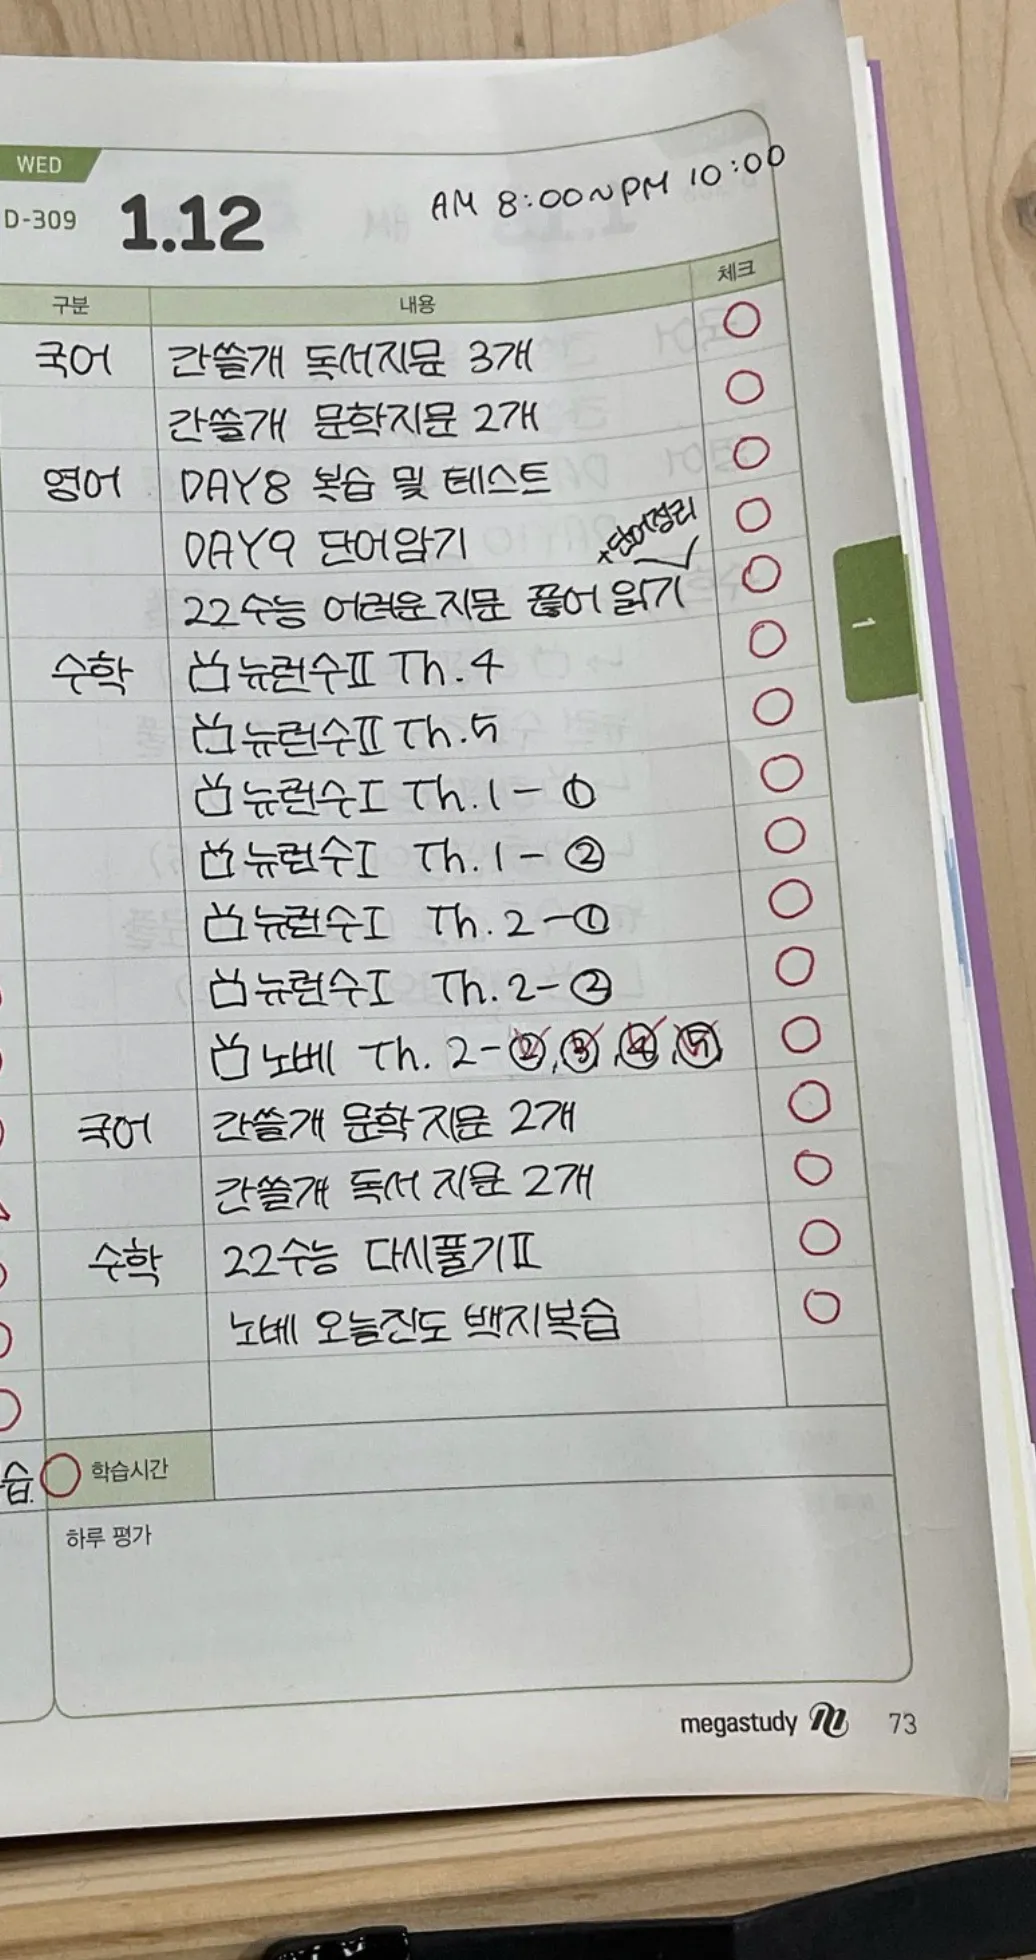 WED
D-309 1.12 AM 8:00~PM 10:00
구분 내용 체크
국어 간쓸개 독서지문 3개
간쓸개 문학지문 2개
영어 DAY8 복습 및 테스트
DAY9 단어암기
+단어정리
22수능 어려운지문 끊어 읽기
수학 뉴런수Ⅱ Th.4
뉴런수Ⅱ Th.5
뉴런수Ⅰ Th.1-①
뉴런수Ⅰ Th.1-②
뉴런수Ⅰ Th.2-①
뉴런수Ⅰ Th.2-②
노베 Th.2-②,③,④,⑤
국어 간쓸개 문학지문 2개
간쓸개 독서지문 2개
수학 22수능 다시풀기Ⅱ
노베 오늘진도 백지복습
습. 학습시간
하루 평가
1
megastudy 73